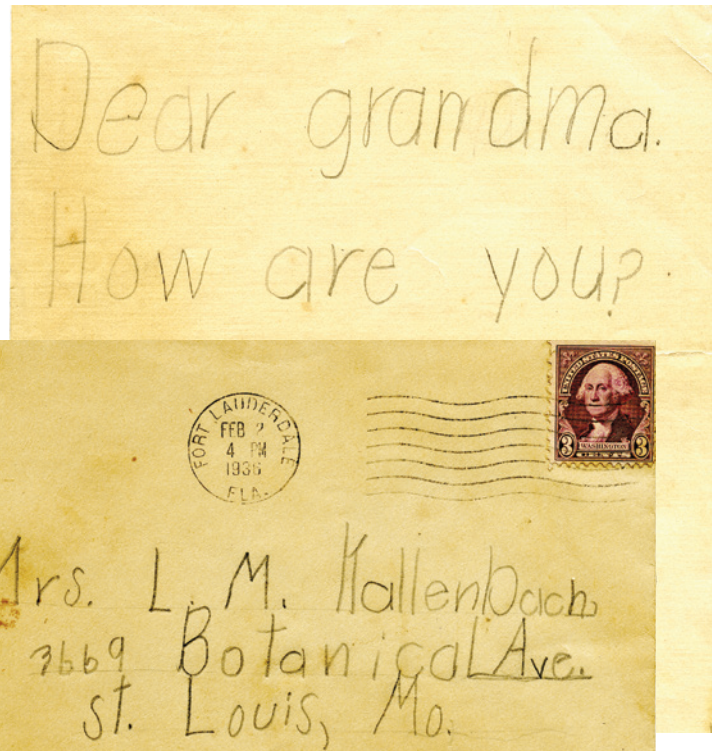 Dear grandma.
How are you?
FORT LAUDERDALE
FEB 2
4 PM
1936
FLA.
UNITED STATES POSTAGE
3 WASHINGTON 3
CENTS
Mrs. L. M. Kallenbach
3669 Botanical Ave.
St. Louis, Mo.